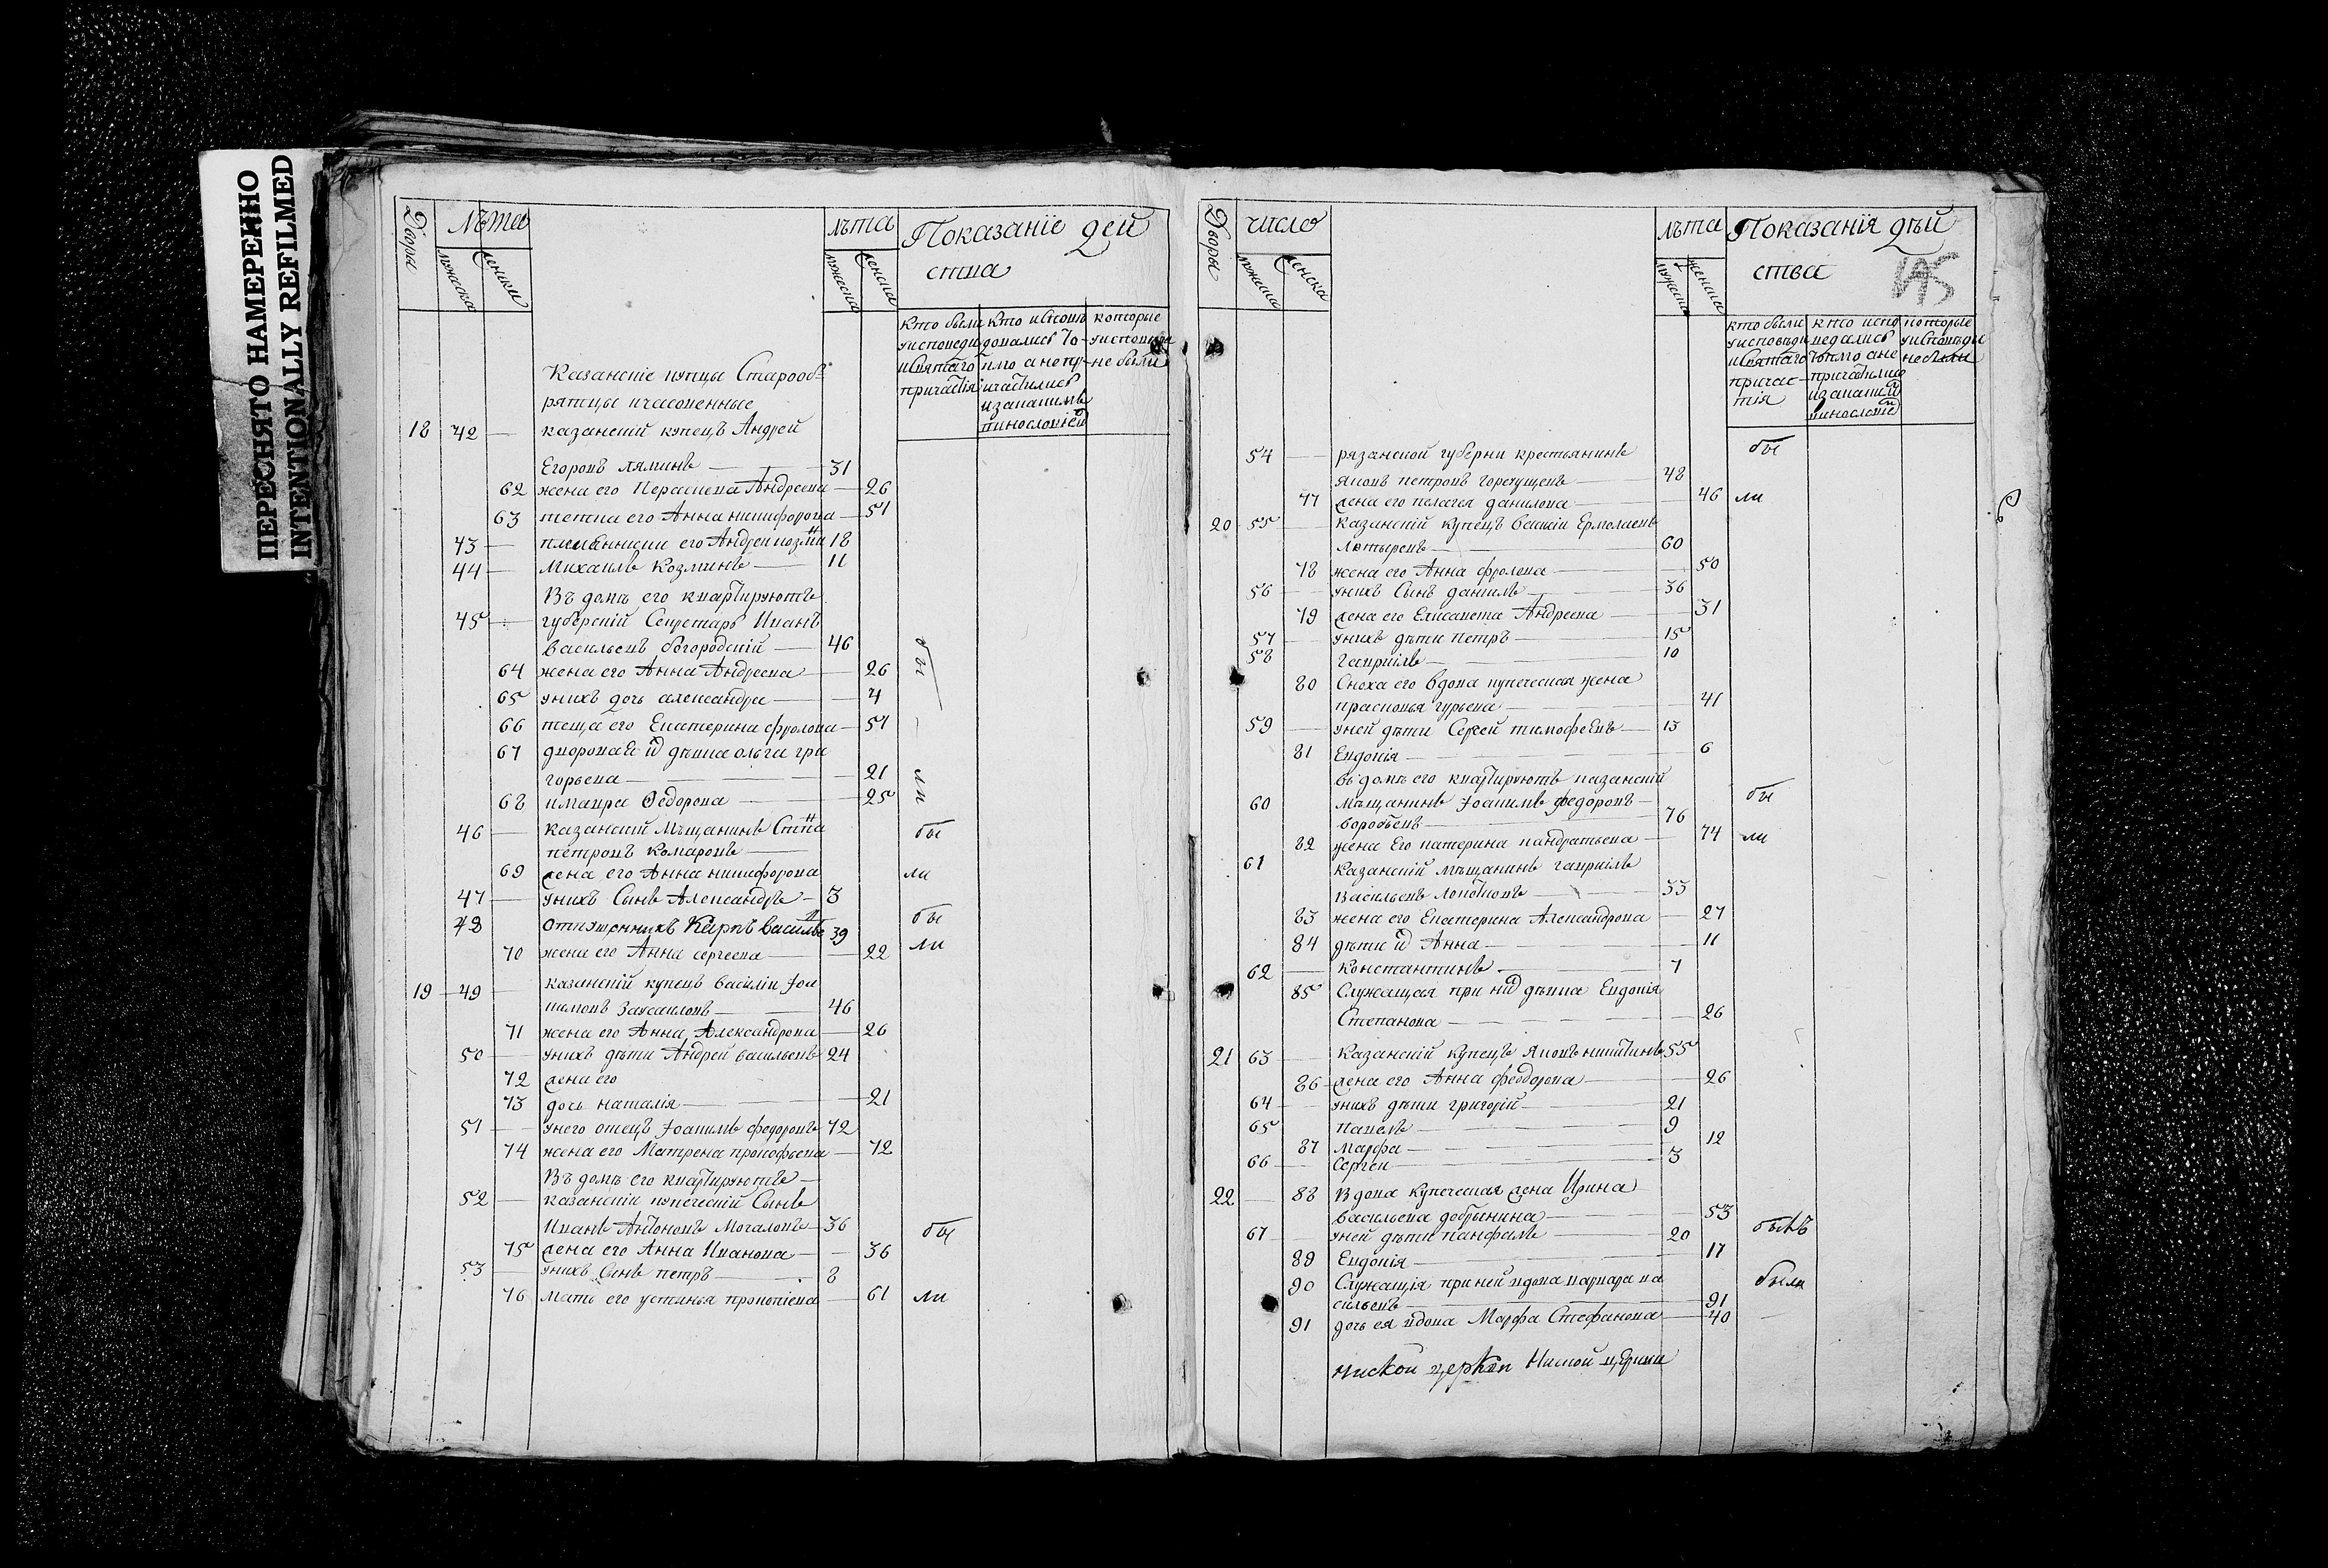 ПЕРЕСНЯТО НАМЕРЕННО
INTENTIONALLY REFILMED
Дворы
Лѣта
лѣта
Показаніе дей
ства
мужеска
женски
мужеска
женска
кто были кто исповѣ которые
Казанскіе купцы Старооб
рятцы и часовенные
18 42 — казанскій купецъ Андрей
Егоровъ лялинъ — 31
62 жена его Параскева Андреева — 26
63 тетка его Анна никифорова — 51
43 — племянники его Андрей козми 18
44 — Михаилъ Козминъ — 11
Въ домѣ его квартируютъ
45 — губерскій Секретарь Иванъ
васильевъ богородскій — 46
64 жена его Анна Андреева — 26
65 унихъ дочь александра — 4
66 теща его Екатерина фролова — 51
67 дворовая ихъ дѣвка ольга гри
горьева — 21
68 и мавра Федорова — 25
бы
ли
46 — казанскій Мѣщанинъ Степа бы
петровъ комаровъ —
69 жена его Анна никифорова ли
47 — унихъ Сынъ Александръ — 3
48 отпущенникъ Карпъ василье 39 бы
70 жена его Анна сергеева — 22 ли
19 49 казанскій купецъ василіи Іоа
кимовъ Заусаиловъ — 46
71 жена его Анна Александрова — 26
50 — унихъ дѣти Андрей васильевъ 24
72 жена его
73 дочь наталія — 21
51 — унего отецъ Іоакимъ федоровъ 72
74 жена его Матрена прокофьева — 72
Въ домѣ его квартируютъ —
52 — казанскіи купеческій Сынъ
Иванъ Антоновъ Мочаловъ — 36 бы
75 жена его Анна Иванова — 36
53 — унихъ Сынъ петръ — 8
76 мать его устинья прокопіева — 61 ли
Дворы
число
лѣта
Показанія дѣй
ства
195
мужеска
женска
мужеска
женска
кто были кто испо которые
54 — рязанской губерни крестьянинъ бы
яковъ петровъ горемущевъ — 48
77 жена его пелагея данилова — 46 ли
20 55 — казанскій купецъ василіи Ермолаевъ
лотыревъ — 60
78 жена его Анна фролова — 50
56 — унихъ Сынъ данилъ — 36
79 жена его Елисавета Андреева — 31
57 — унихъ дѣти петръ — 15
58 гаврiилъ — 10
80 Сноха его вдова купеческая жена
прасковья гурьева — 41
59 — уней дѣти Сергей тимофеевъ — 13
81 Евдокія — 6
въ домѣ его квартируютъ казанскій
60 мѣщанинъ Іоакимъ федоровъ — бы
воробьевъ — 76
82 жена Его катерина кандратьева — 74 ли
61 казанскій мѣщанинъ гаврiилъ
васильевъ — 33
83 жена его Екатерина Александрова — 27
84 дѣти ихъ Анна — 11
62 — константинъ — 7
85 Служащая при нихъ дѣвка Евдокія
Степанова — 26
21 63 — казанскій купецъ яковъ никитинъ 55
86 жена его Анна феодорова — 26
64 — унихъ дѣти григорій — 21
65 павелъ — 9
87 марфа — 12
66 — Сергеи — 3
22 — 88 Вдова купеческая жена Ирина
васильева добрынина — 53
67 — уней дѣти панфилъ — 20 былъ
89 Евдокія — 17
90 Служащія при ней вдова варвара ва были
сильевъ — 91
91 дочь ея вдова Марфа Стефанова — 40
нискои церкви Нискои церкви